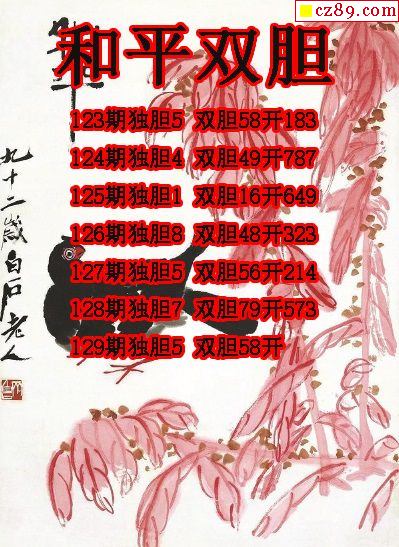 cz89.com
和平双胆
123期独胆5 双胆58开183
124期独胆4 双胆49开787
125期独胆1 双胆16开649
126期独胆8 双胆48开323
127期独胆5 双胆56开214
128期独胆7 双胆79开573
129期独胆5 双胆58开
九十二岁白石老人